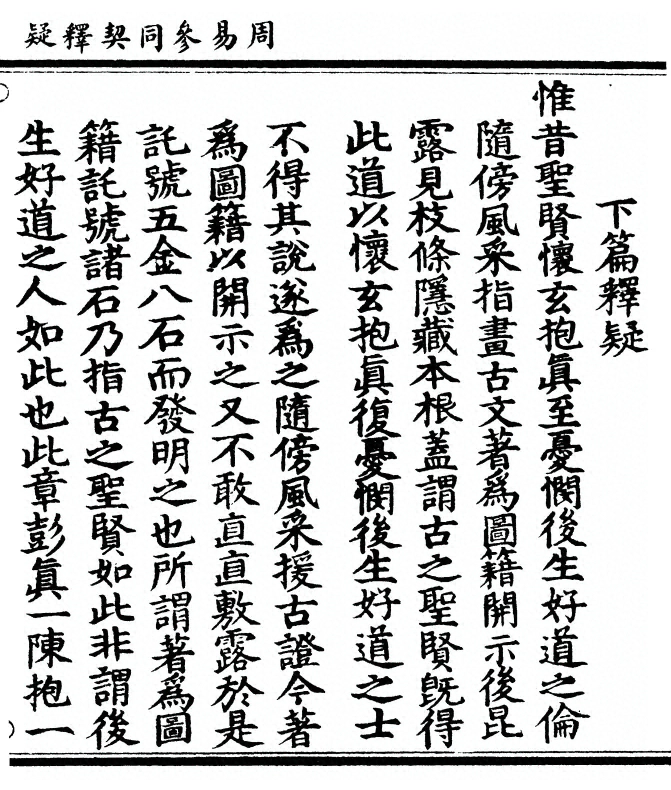 周易參同契釋疑
下篇釋疑
惟昔聖賢懷玄抱眞至憂憫後生好道之倫
隨傍風采指畫古文著爲圖籍開示後昆
露見枝條隱藏本根蓋謂古之聖賢旣得
此道以懷玄抱眞復憂憫後生好道之士
不得其說遂爲之隨傍風采援古證今著
爲圖籍以開示之又不敢直直敷露於是
託號五金八石而發明之也所謂著爲圖
籍託號諸石乃指古之聖賢如此非謂後
生好道之人如此也此章彭眞一陳抱一